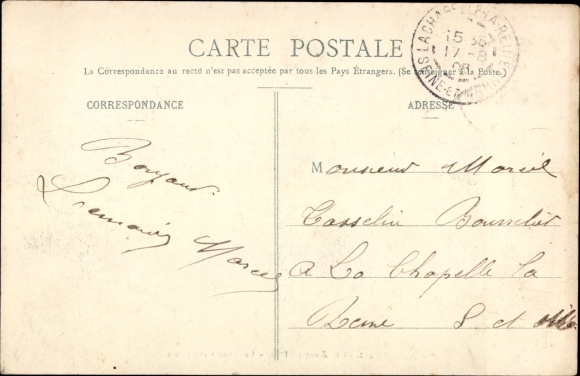 CARTE POSTALE
La Correspondance au recto n'est pas acceptée par tous les Pays Étrangers. (Se renseigner à la Poste.
LA CHAPELLE-LA-REINE
15 35
17 -8
08
SEINE-ET-M
CORRESPONDANCE
ADRESSE
Bonjour
Marcel
Monsieur Marcel
Tasselin Bourrelier
A La Chapelle la
Reine S. et